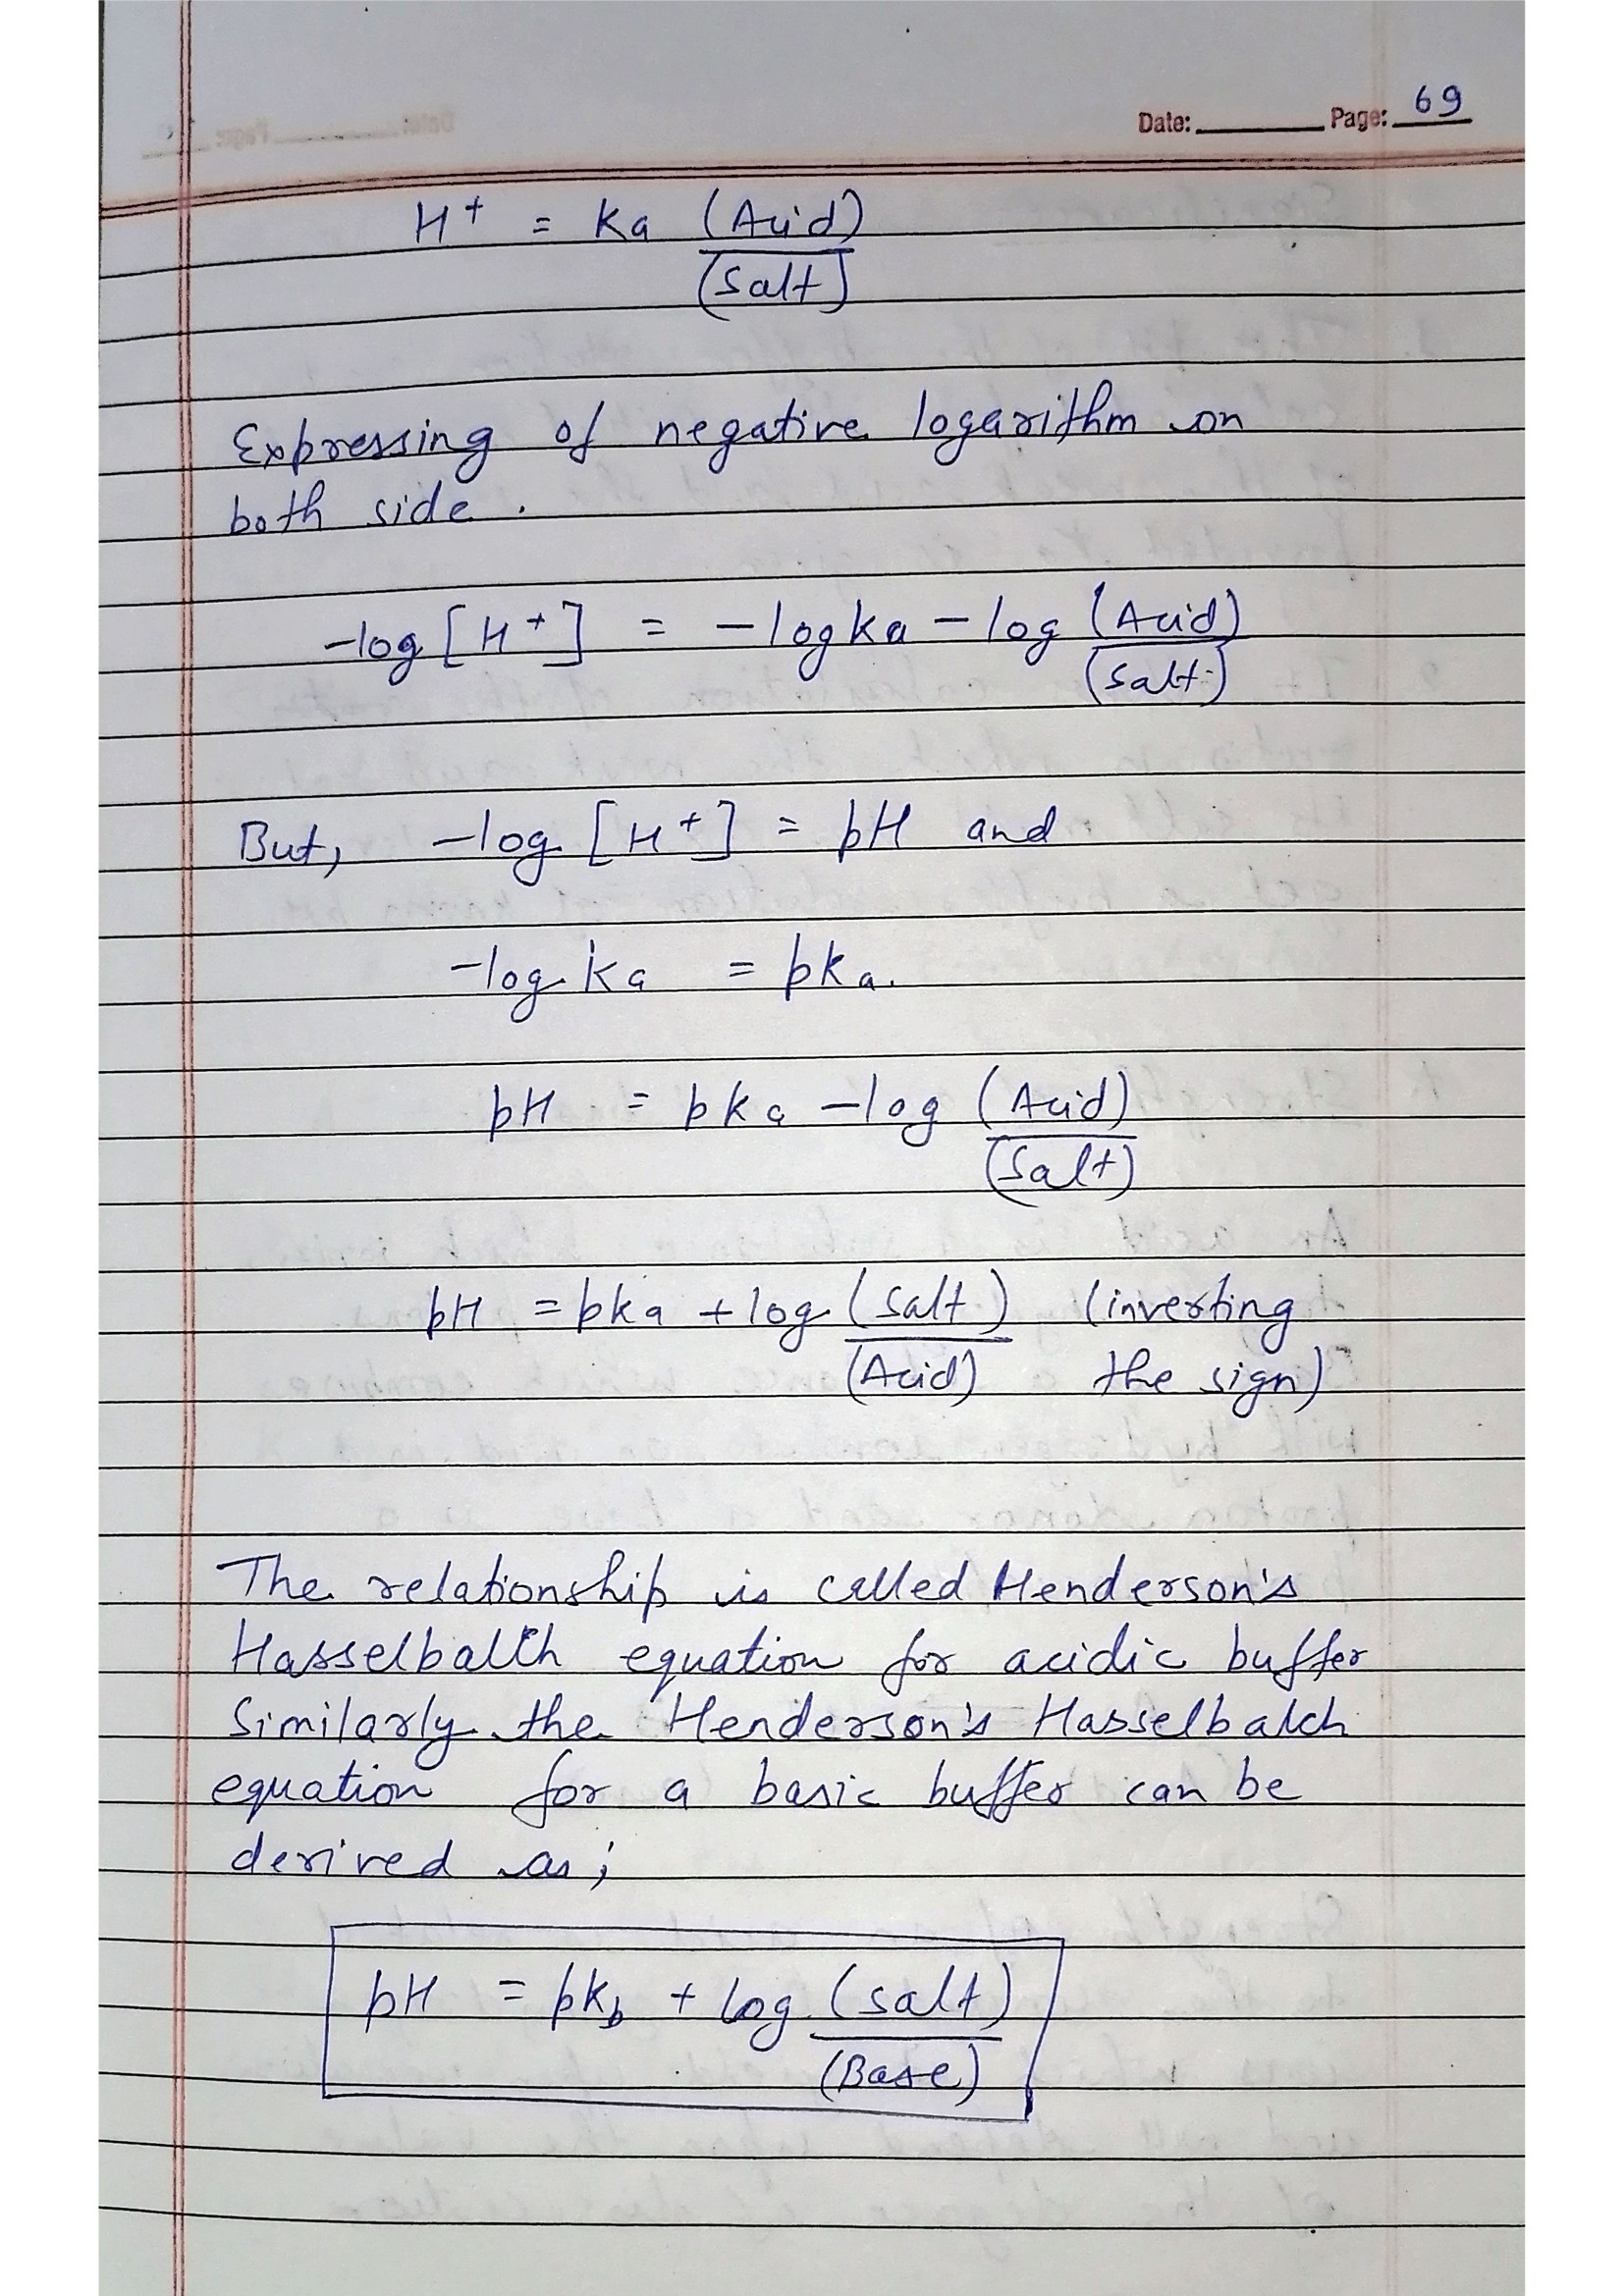 Date: ________ Page: 69
H+ = Ka (Acid)
(Salt)
Expressing of negative logarithm on
both side.
-log [H+] = -log ka - log (Acid)
(Salt)
But, -log [H+] = pH and
-log ka = pka.
pH = pka - log (Acid)
(Salt)
pH = pka + log (Salt) (inverting
(Acid) the sign)
The relationship is called Henderson's
Hasselbalch equation for acidic buffer
Similarly the Henderson's Hasselbalch
equation for a basic buffer can be
derived as;
pH = pkb + log (salt)
(Base)